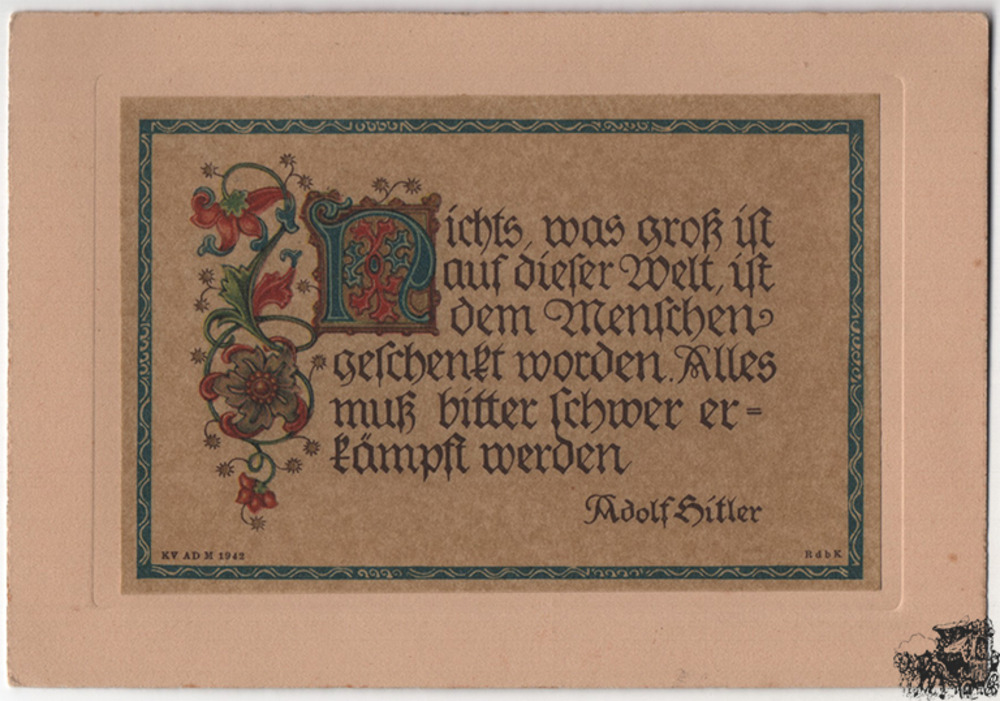 Nichts, was groß ist
auf dieser Welt, ist
dem Menschen
geschenkt worden. Alles
muß bitter schwer er=
kämpft werden
Adolf Hitler
KV AD M 1942
RdbK